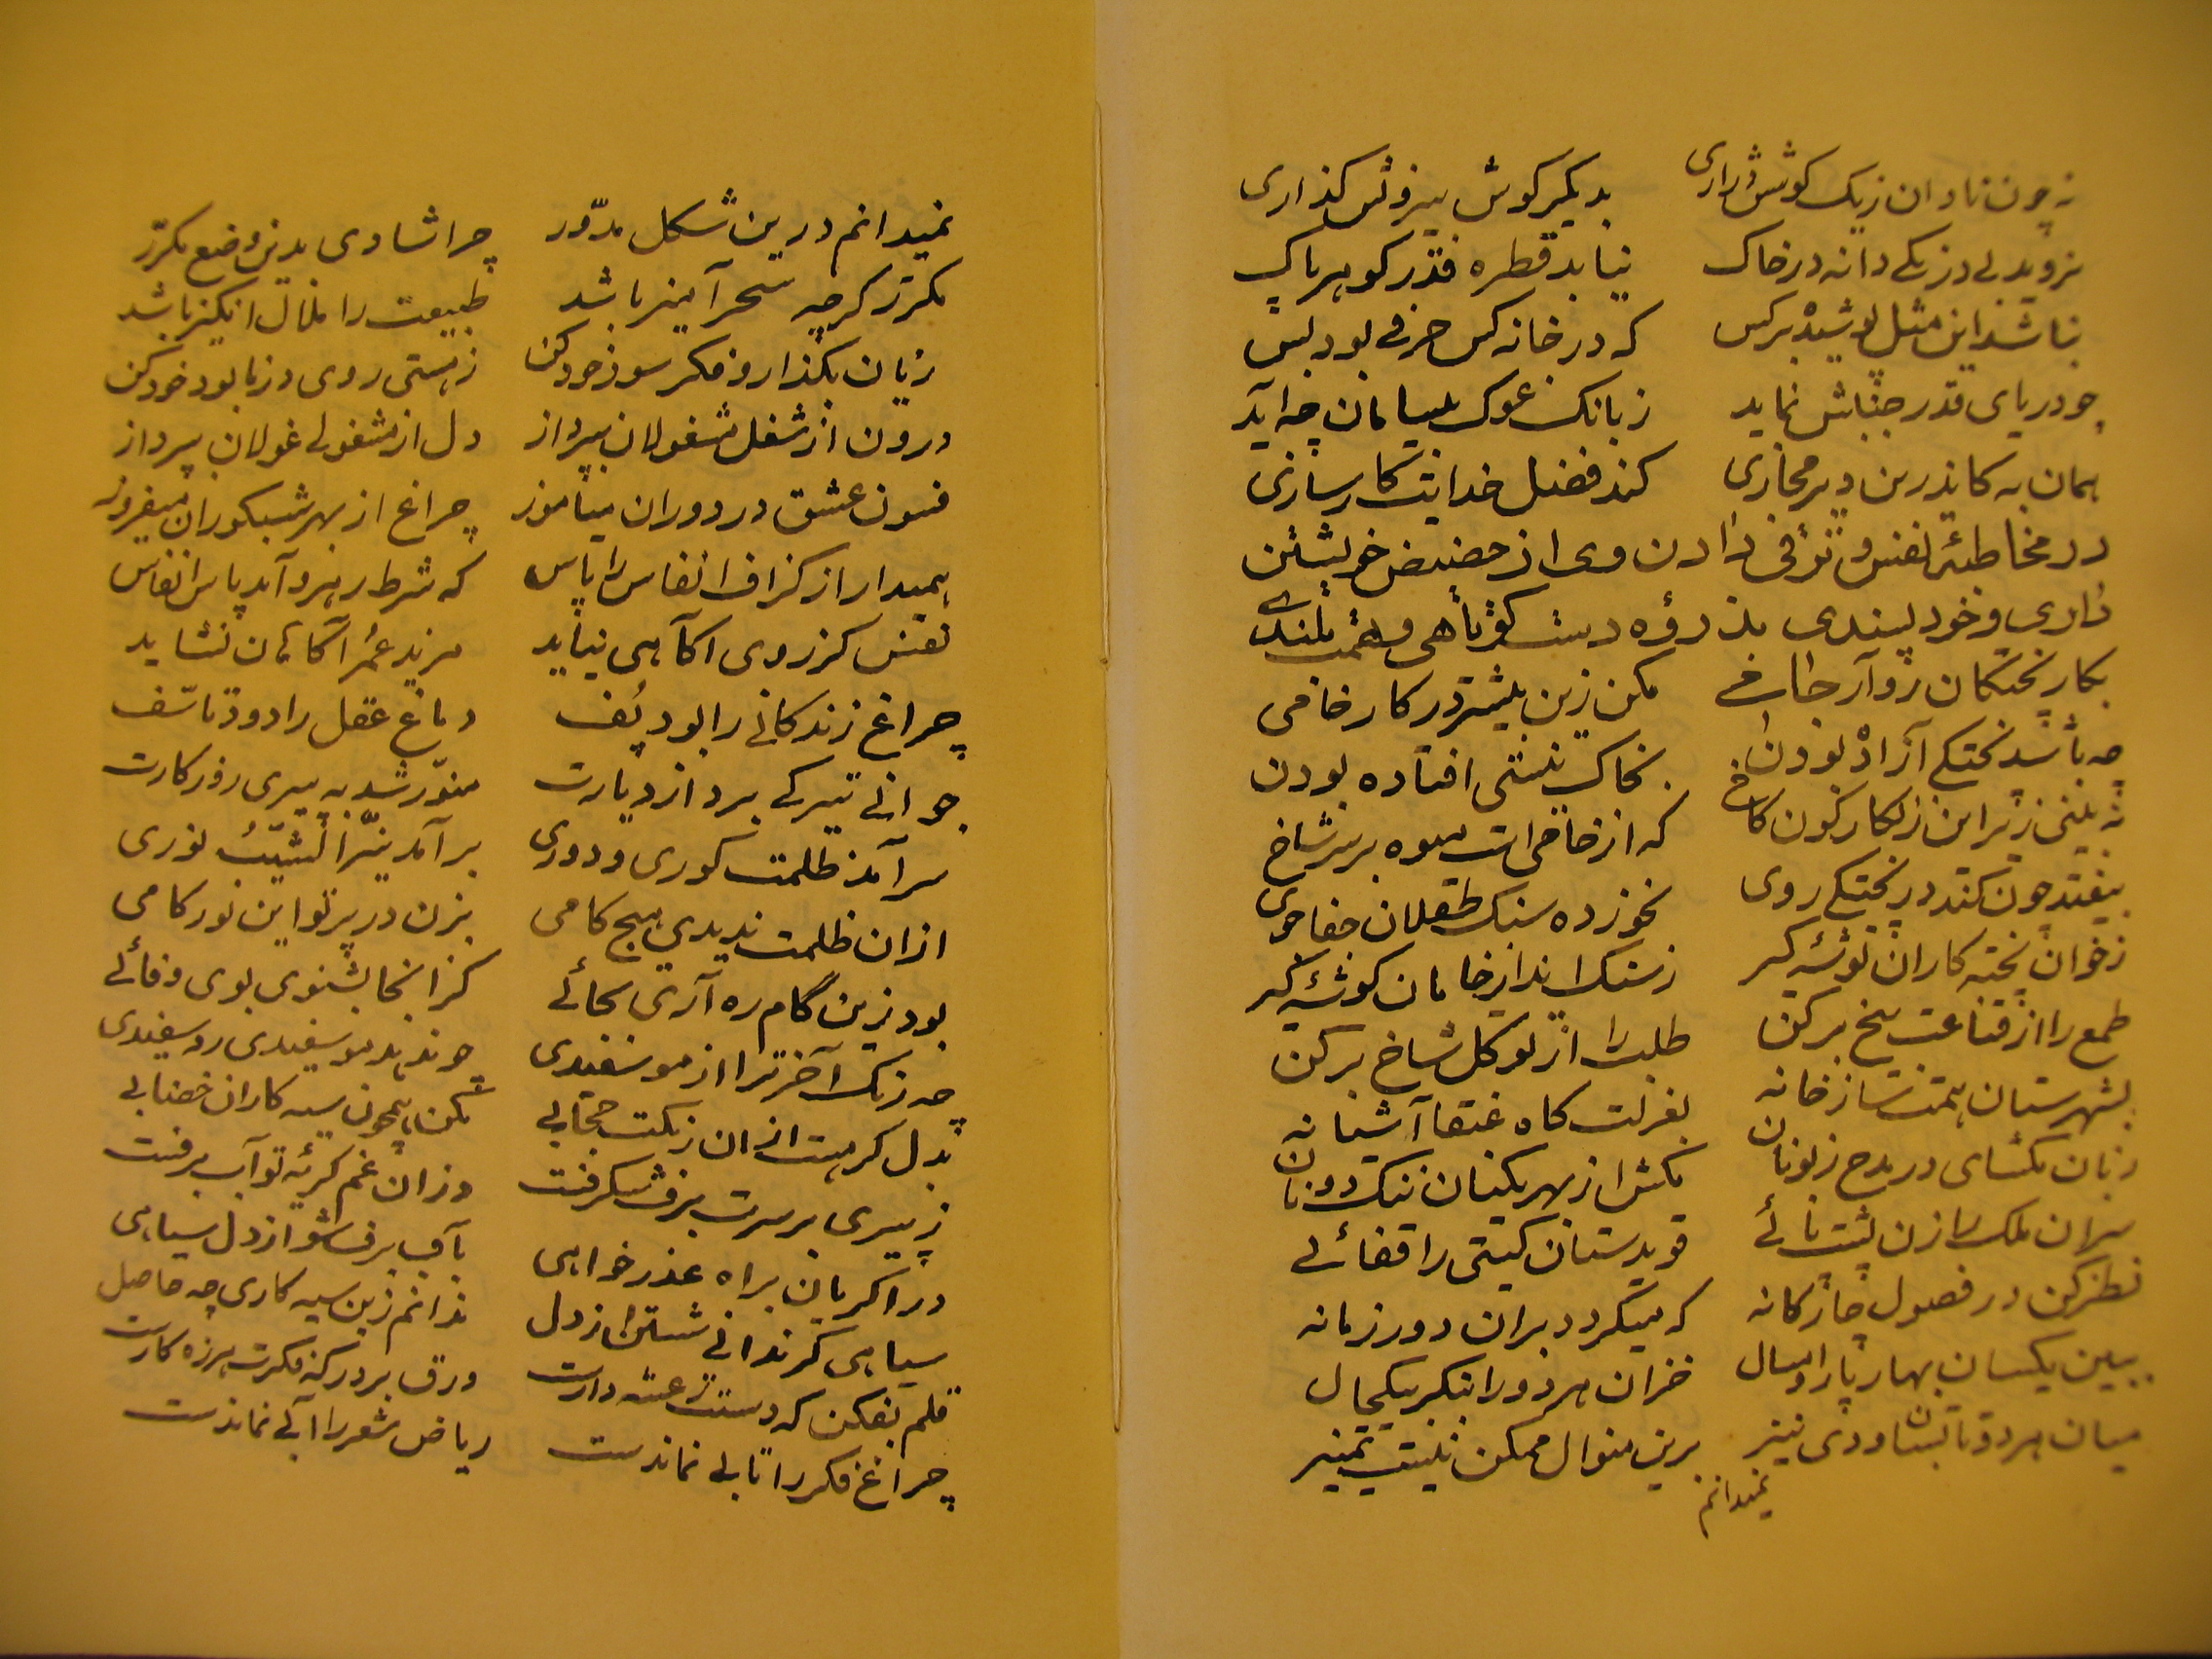 نه چون نادان ز یک گوشش درآری بدیگر گوش بیرونش گذاری
نروید بی درنگی دانه در خاک نیابد قطره قدر گوهر پاک
نباشد این مثل پوشیده برکس که در خانه کس حرفی بود بس
چو دریای قدر جنبش نماید ز بانک غوک بی سامان چه آید
همان به کاندرین دیر مجازی کند فضل خدایت کارسازی
در مخاطبهٔ نفس و ترقی دادن وی از حضیض خویشتن
داری و خود پسندی بذروه دست کوتاهی و همت بلندی
بکار پختگان رو آر خامی مکن زین بیشتر در کار خامی
چه باشد پختگی آزاد بودن بخاک نیستی افتاده بودن
نه بینی زیر این زنگارگون کاخ که از خامی است میوه بر سر شاخ
بیفتد چون کند در پختگی روی نخورده سنگ طفلان جفاجوی
ز خوان پخته کاران توشه گیر ز سنگ انداز خامان گوشه گیر
طمع را از قناعت بیخ برکن طلب را از توکل شاخ برکن
بشهرستان همت ساز خانه بعزلت گاه عنقا آشیانه
زبان مگشای در مدح زبونان مکش از بهر یکنان ننگ دونان
سران ملک را زن پشت پائی قوی دستان گیتی را قفائی
نظر کن در فصول چارگانه که میگردد بران دور زمانه
ببین یکسان بهار پار و امسال خزان هر دو را بنگر بیکحال
میان هر دو تابستان و دی نیز برین منوال ممکن نیست تمییز
نمیدانم
نمیدانم درین شکل مدوّر چرا شادی بدین وضع مکرّر
مکرّر گرچه سحر آمیز باشد طبیعت را ملال انگیز باشد
زیان بگذار و فکر سود خود کن ز هستی روی در نابود خود کن
درون از شغل مشغولان بپرداز دل از مشغولی غولان بپرداز
فسون عشق در دوران میاموز چراغ از بهر شبکوران میفروز
همیدار از گزاف انفاس را پاس که شرط رهرو آمد پاس انفاس
نفس کز روی اکاهی نیاید مزید عمر آگاهان نشاید
چراغ زندگانی را بود پف دماغ عقل را دود تاسّف
جوانی تیرگی برد از دیارت منوّر شد به پیری روزگارت
سرآمد ظلمت کوری و دوری برآمد نیّر الشیب نوری
ازان ظلمت ندیدی هیچ کامی بزن در پرتو این نور گامی
بود زین گام ره آری بجائی کز انجا بشنوی بوی وفائی
چه رنگ آخر ترا از مو سفیدی چو ندهد مو سفیدی رو سفیدی
بدل گر هست ازان رنگت حجابی مکن همچون سیه کاران خضابی
ز پیری بر سرت برف شگرفت وزان غم گریه تو آب برفت
درا گریان براه عذر خواهی بآب برف شو از دل سیاهی
سیاهی گر ندانی شستن از دل ندانم زین سیه کاری چه حاصل
قلم بفکن که دستت رعشه دارست ورق بردر که فکرت هرزه کارست
چراغ فکر را تابی نماندست ریاض شعر را آبی نماندست